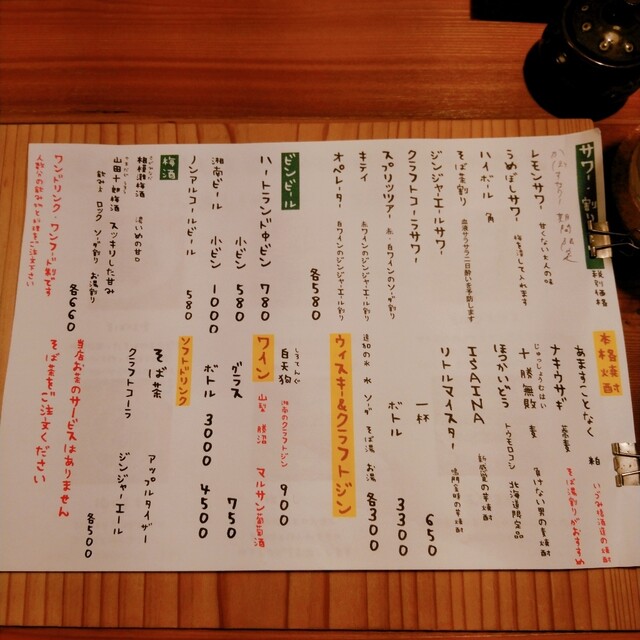 サワー・割り
税別価格
期間限定
レモンサワー 甘くない大人の味
うめぼしサワー 梅を潰して入れます
ハイボール 角
そば茶割り 血液サラサラ二日酔いを予防します
ジンジャエールサワー
クラフトコーラサワー
スプリッツァー 赤・白ワインのソーダ割り
キティ 赤ワインのジンジャエール割り
オペレーター 白ワインのジンジャエール割り
各580
ビンビール
ハートランド中ビン 780
小ビン 580
湘南ビール 小ビン 1000
ノンアルコールビール 580
梅酒
相模灘梅酒 濃いめの甘口
山田十郎梅酒 スッキリした甘み
飲み方 ロック ソーダ割り お湯割り
各660
ワンドリンク・ワンフード制です
人数分の飲み物とお料理をご注文下さい
本格焼酎
あますことなく 粕 いづみ橋酒造の焼酎
ナキウサギ 蕎麦 そば湯割りがおすすめ
じゅっしょうむはい
十勝無敗 麦 負けない男の麦焼酎
ほっかいどう トウモロコシ 北海道限定品
ISAINA 新感覚の芋焼酎
リトルマイスター 鳴門金時の芋焼酎
一杯 650
ボトル 3300
追加の氷 水 ソーダ そば湯 お湯 各300
ウィスキー&クラフトジン
白天狗 湘南のクラフトジン 900
ワイン 山梨 勝沼 マルサン葡萄酒
グラス 750
ボトル 3000 4500
ソフトドリンク
そば茶 アップルタイザー
クラフトコーラ ジンジャーエール
各500
当店お茶のサービスはありません
そば茶をご注文ください